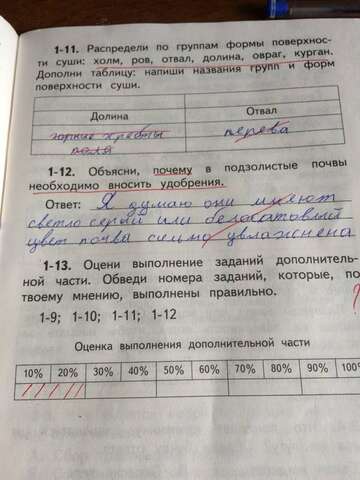 1-11. Распредели по группам формы поверхнос-
ти суши: холм, ров, отвал, долина, овраг, курган.
Дополни таблицу: напиши названия групп и форм
поверхности суши.
Долина Отвал
горные хребты
поля
перева
1-12. Объясни, почему в подзолистые почвы
необходимо вносить удобрения.
Ответ: Я думаю они имеют
светло серый или белесоватый
цвет почвы сильно увлажнена
1-13. Оцени выполнение заданий дополнитель-
ной части. Обведи номера заданий, которые, по
твоему мнению, выполнены правильно.
1-9; 1-10; 1-11; 1-12
Оценка выполнения дополнительной части
10% 20% 30% 40% 50% 60% 70% 80% 90% 100%